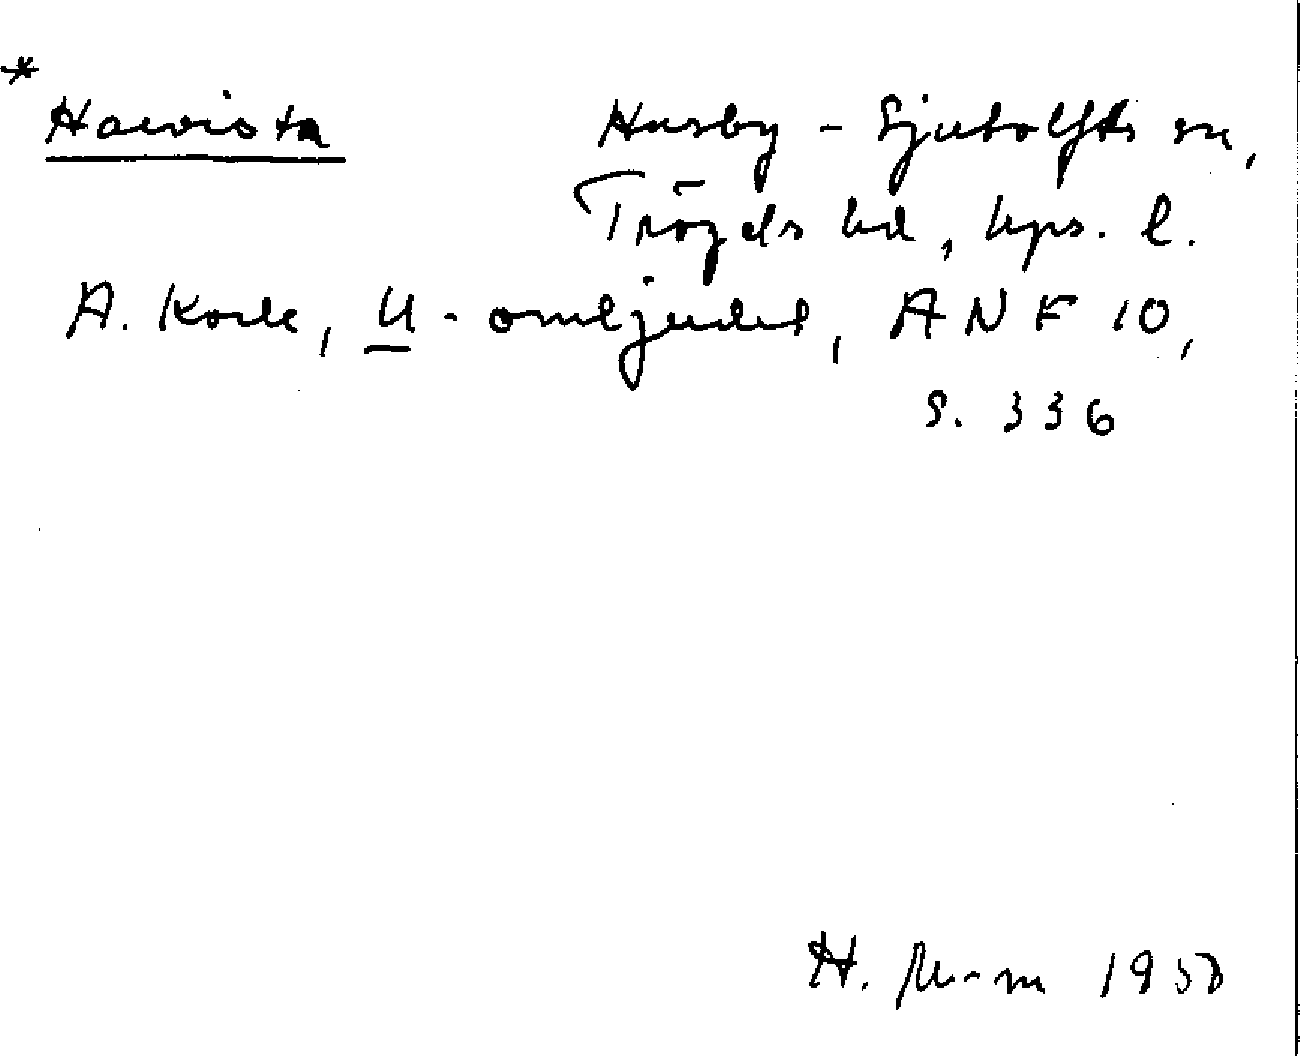 * Haevista Husby-Sjutolfts sn,
Trögds hd, Upps. l.
A. Kock, U-omljudet, ANF 10,
s. 336
H. 1950